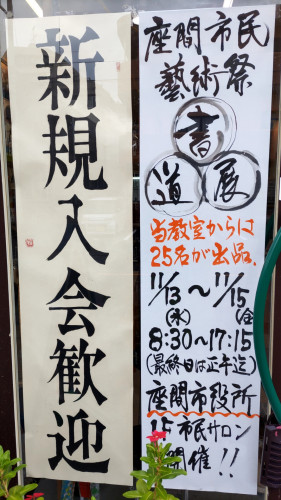 新規入会歓迎
座間市民
藝術祭
書
道展
当教室からは
25名が出品、
11/13〜11/15
(水) (金)
8:30〜17:15
(最終日は正午迄)
座間市役所
1F市民サロン
開催!!